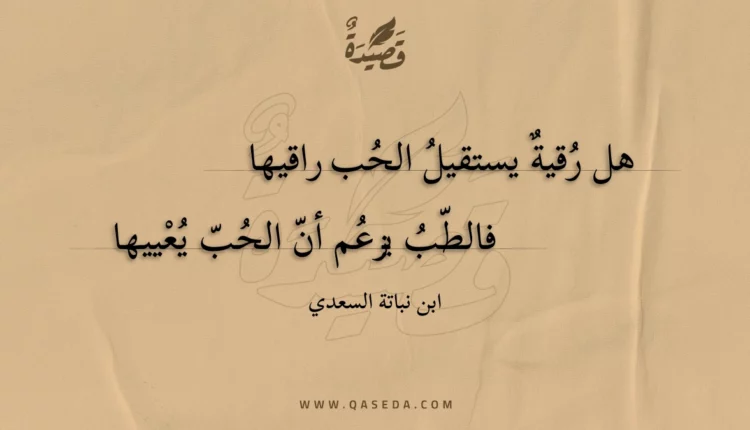 قَصِيْدَةٌ
هل رُقيةٌ يستقيلُ الحُب راقيها
فالطّبُ يزعُم أنّ الحُبّ يُعْييها
ابن نباتة السعدي
WWW.QASEDA.COM